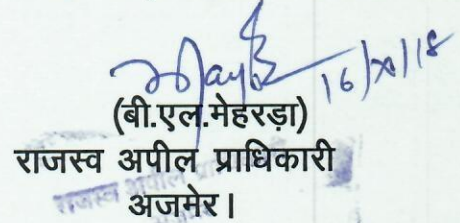 16/XI/18
(बी.एल.मेहरड़ा)
राजस्व अपील प्राधिकारी
अजमेर।